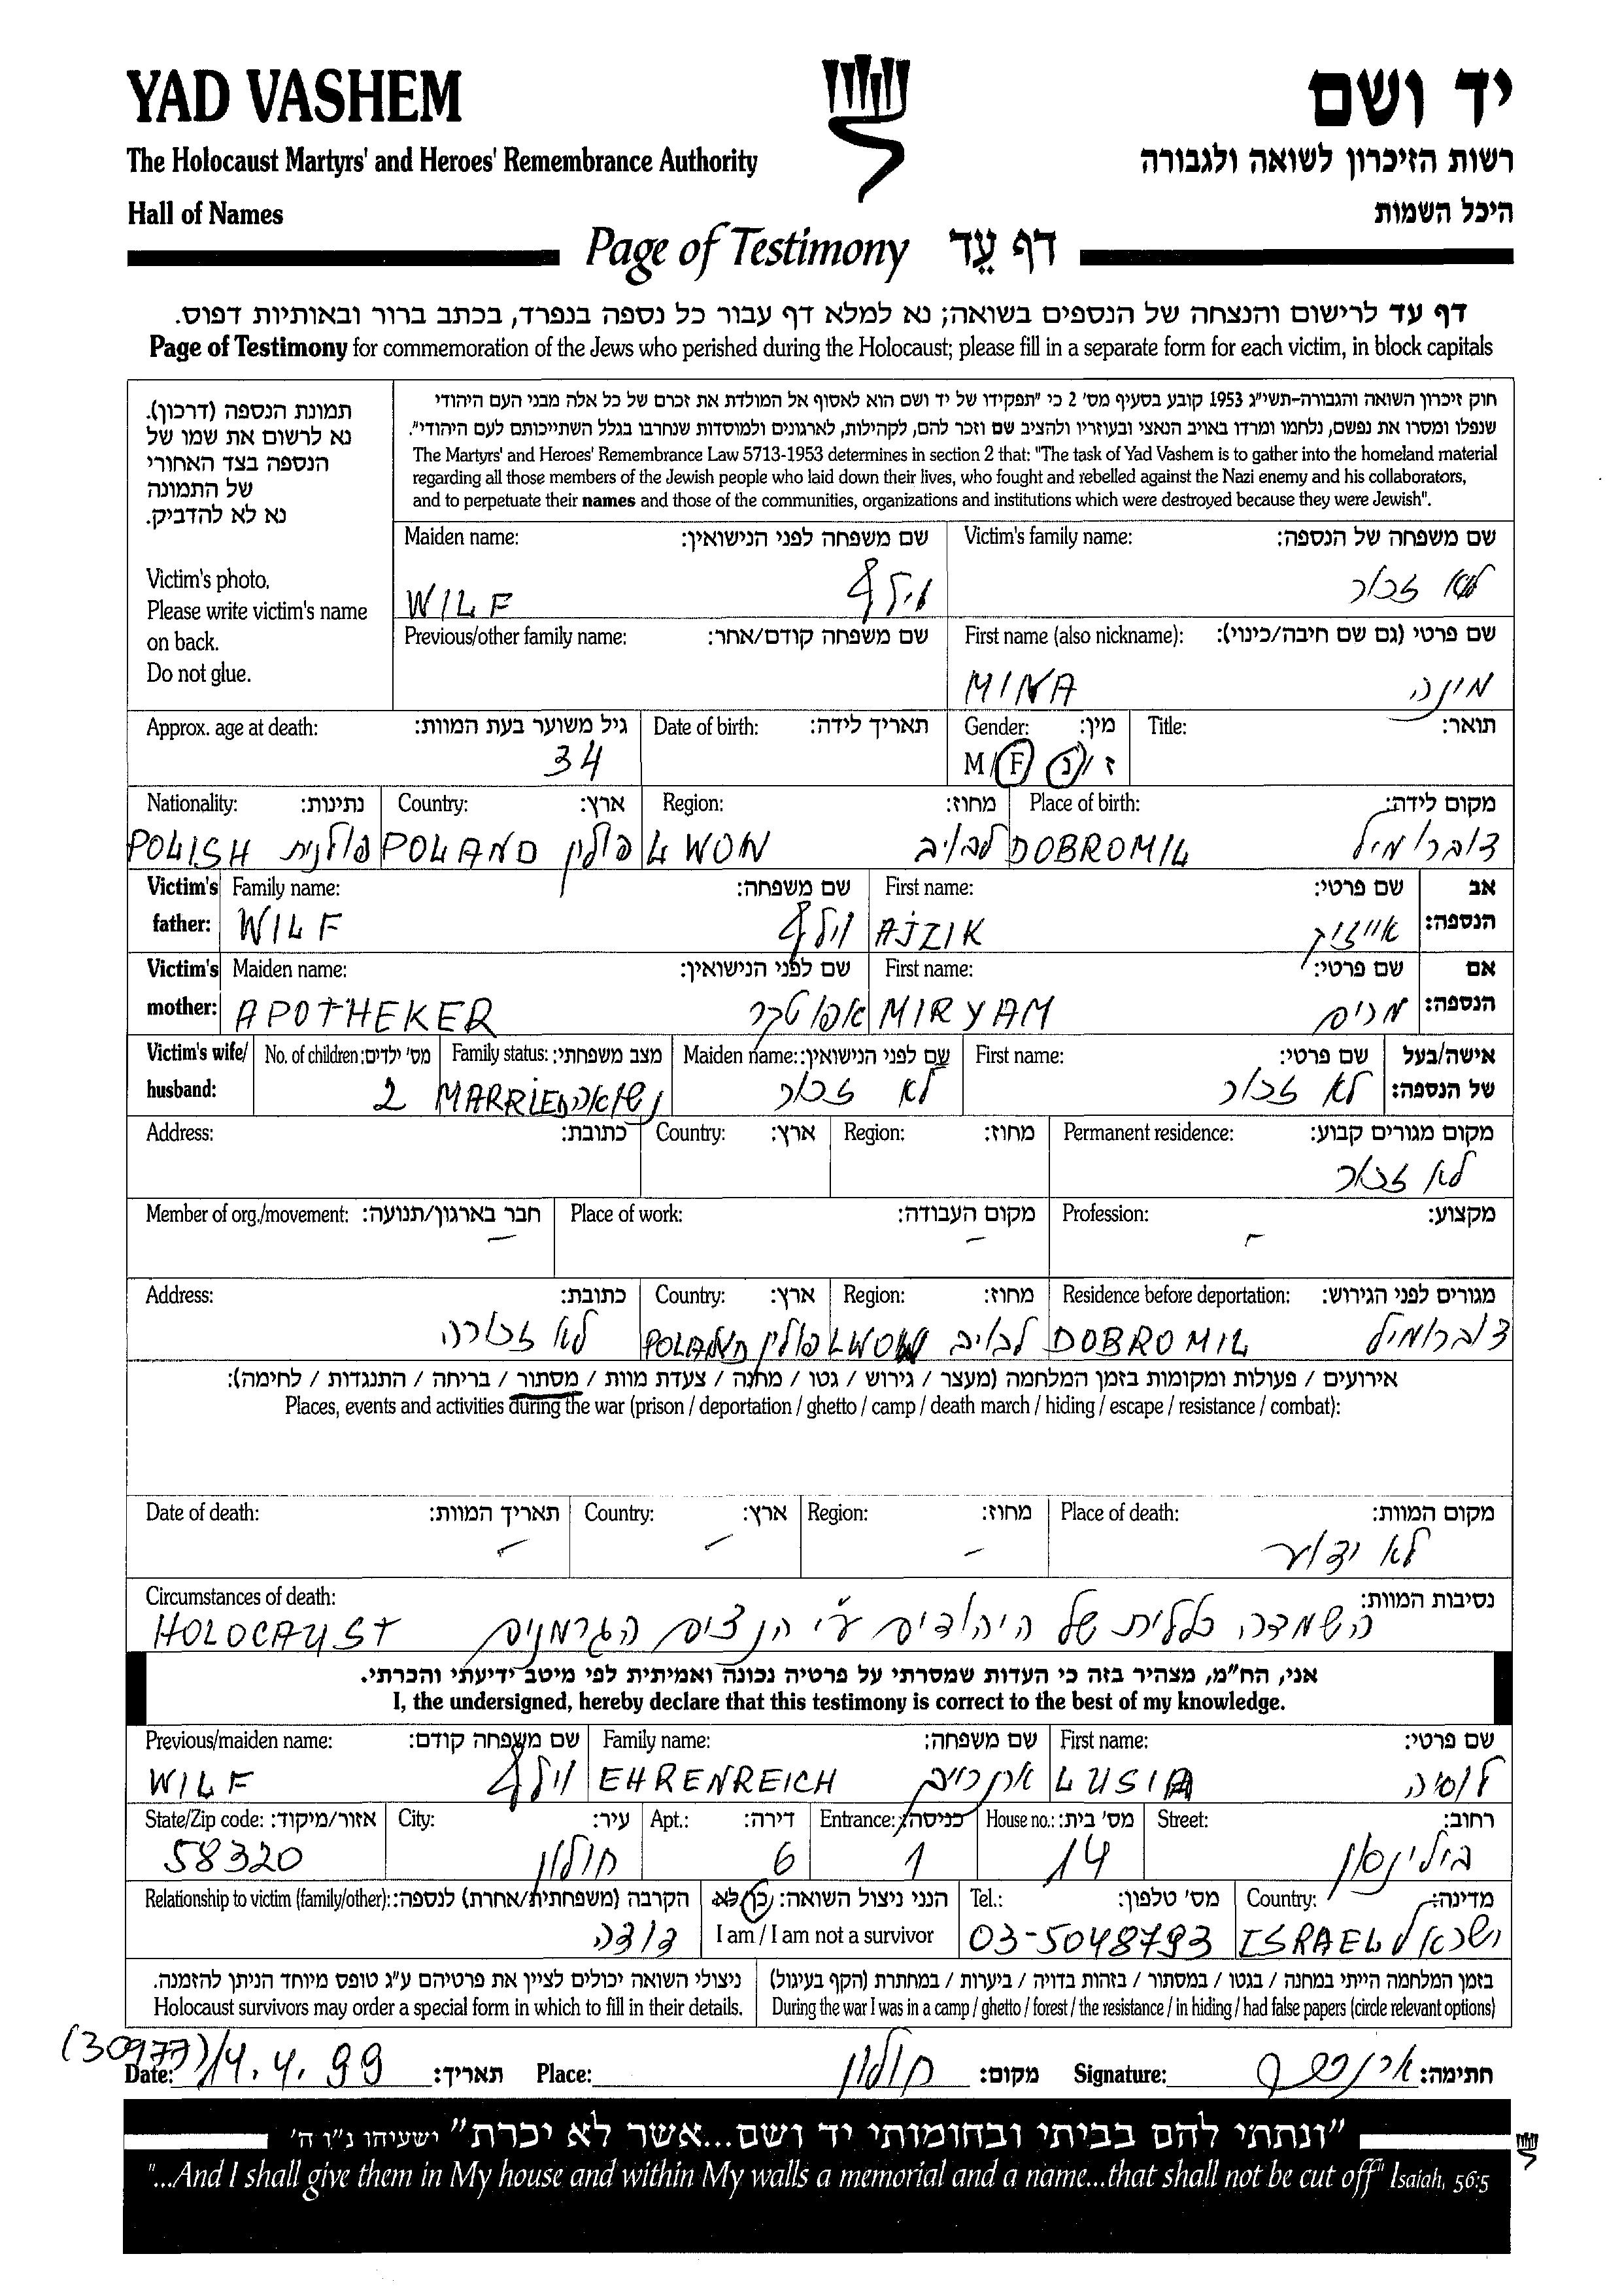 YAD VASHEM יד ושם
The Holocaust Martyrs' and Heroes' Remembrance Authority רשות הזיכרון לשואה ולגבורה
Hall of Names היכל השמות
Page of Testimony דף עֵד
דף עד לרישום והנצחה של הנספים בשואה; נא למלא דף עבור כל נספה בנפרד, בכתב ברור ובאותיות דפוס.
Page of Testimony for commemoration of the Jews who perished during the Holocaust; please fill in a separate form for each victim, in block capitals
תמונת הנספה (דרכון).
נא לרשום את שמו של
הנספה בצד האחורי
של התמונה
נא לא להדביק.
Victim's photo.
Please write victim's name
on back.
Do not glue.
חוק זיכרון השואה והגבורה-תשי"ג 1953 קובע בסעיף מס' 2 כי "תפקידו של יד ושם הוא לאסוף אל המולדת את זכרם של כל אלה מבני העם היהודי
שנפלו ומסרו את נפשם, נלחמו ומרדו באויב הנאצי ובעוזריו ולהציב שם וזכר להם, לקהילות, לארגונים ולמוסדות שנחרבו בגלל השתייכותם לעם היהודי".
The Martyrs' and Heroes' Remembrance Law 5713-1953 determines in section 2 that: "The task of Yad Vashem is to gather into the homeland material
regarding all those members of the Jewish people who laid down their lives, who fought and rebelled against the Nazi enemy and his collaborators,
and to perpetuate their names and those of the communities, organizations and institutions which were destroyed because they were Jewish".
Maiden name: שם משפחה לפני הנישואין: Victim's family name: שם משפחה של הנספה:
WILF וילף לא זכור
Previous/other family name: שם משפחה קודם/אחר: First name (also nickname): שם פרטי (גם שם חיבה/כינוי):
MINA מינה
Approx. age at death: גיל משוער בעת המוות: Date of birth: תאריך לידה: Gender: מין: Title: תואר:
34 M/F ז/נ
Nationality: נתינות: Country: ארץ: Region: מחוז: Place of birth: מקום לידה:
POLISH פולנית POLAND פולין LWOW לבוב DOBROMIL דוברומיל
Victim's father: Family name: שם משפחה: First name: שם פרטי: אב הנספה:
WILF וילף AJZIK אייזיק
Victim's mother: Maiden name: שם לפני הנישואין: First name: שם פרטי: אם הנספה:
APOTHEKER אפוטקר MIRYAM מרים
Victim's wife/husband: No. of children: מס' ילדים: Family status: מצב משפחתי: Maiden name: שם לפני הנישואין: First name: שם פרטי: אישה/בעל של הנספה:
2 MARRIED נשואה לא זכור לא זכור
Address: כתובת: Country: ארץ: Region: מחוז: Permanent residence: מקום מגורים קבוע:
לא זכור
Member of org./movement: חבר בארגון/תנועה: Place of work: מקום העבודה: Profession: מקצוע:
- - -
Address: כתובת: Country: ארץ: Region: מחוז: Residence before deportation: מגורים לפני הגירוש:
לא זכורה POLAND פולין LWOW לבוב DOBROMIL דוברומיל
אירועים / פעולות ומקומות בזמן המלחמה (מעצר / גירוש / גטו / מחנה / צעדת מוות / מסתור / בריחה / התנגדות / לחימה):
Places, events and activities during the war (prison / deportation / ghetto / camp / death march / hiding / escape / resistance / combat):
Date of death: תאריך המוות: Country: ארץ: Region: מחוז: Place of death: מקום המוות:
- - - לא ידוע
Circumstances of death: נסיבות המוות:
HOLOCAUST השמדה כללית של היהודים ע"י הנצים הגרמנים
אני, הח"מ, מצהיר בזה כי העדות שמסרתי על פרטיה נכונה ואמיתית לפי מיטב ידיעתי והכרתי.
I, the undersigned, hereby declare that this testimony is correct to the best of my knowledge.
Previous/maiden name: שם משפחה קודם: Family name: שם משפחה: First name: שם פרטי:
WILF וילף EHRENREICH ארנרייך LUSIA לוסיה
State/Zip code: אזור/מיקוד: City: עיר: Apt.: דירה: Entrance: כניסה: House no.: מס' בית: Street: רחוב:
58320 חולון 6 1 14 בילינסון
Relationship to victim (family/other): הקרבה (משפחתית/אחרת) לנספה: הנני ניצול השואה: כן/לא Tel.: מס' טלפון: Country: מדינה:
דודה I am / I am not a survivor 03-5048793 ISRAEL ישראל
ניצולי השואה יכולים לציין את פרטיהם ע"ג טופס מיוחד הניתן להזמנה. בזמן המלחמה הייתי במחנה / בגטו / במסתור / בזהות בדויה / ביערות / במחתרת (הקף בעיגול)
Holocaust survivors may order a special form in which to fill in their details. During the war I was in a camp / ghetto / forest / the resistance / in hiding / had false papers (circle relevant options)
(30977)
Date: 14.4.99 תאריך: Place: חולון מקום: Signature: חתימה:
"ונתתי להם בביתי ובחומותי יד ושם...אשר לא יכרת" ישעיהו נ"ו ה'
"...And I shall give them in My house and within My walls a memorial and a name...that shall not be cut off" Isaiah, 56:5